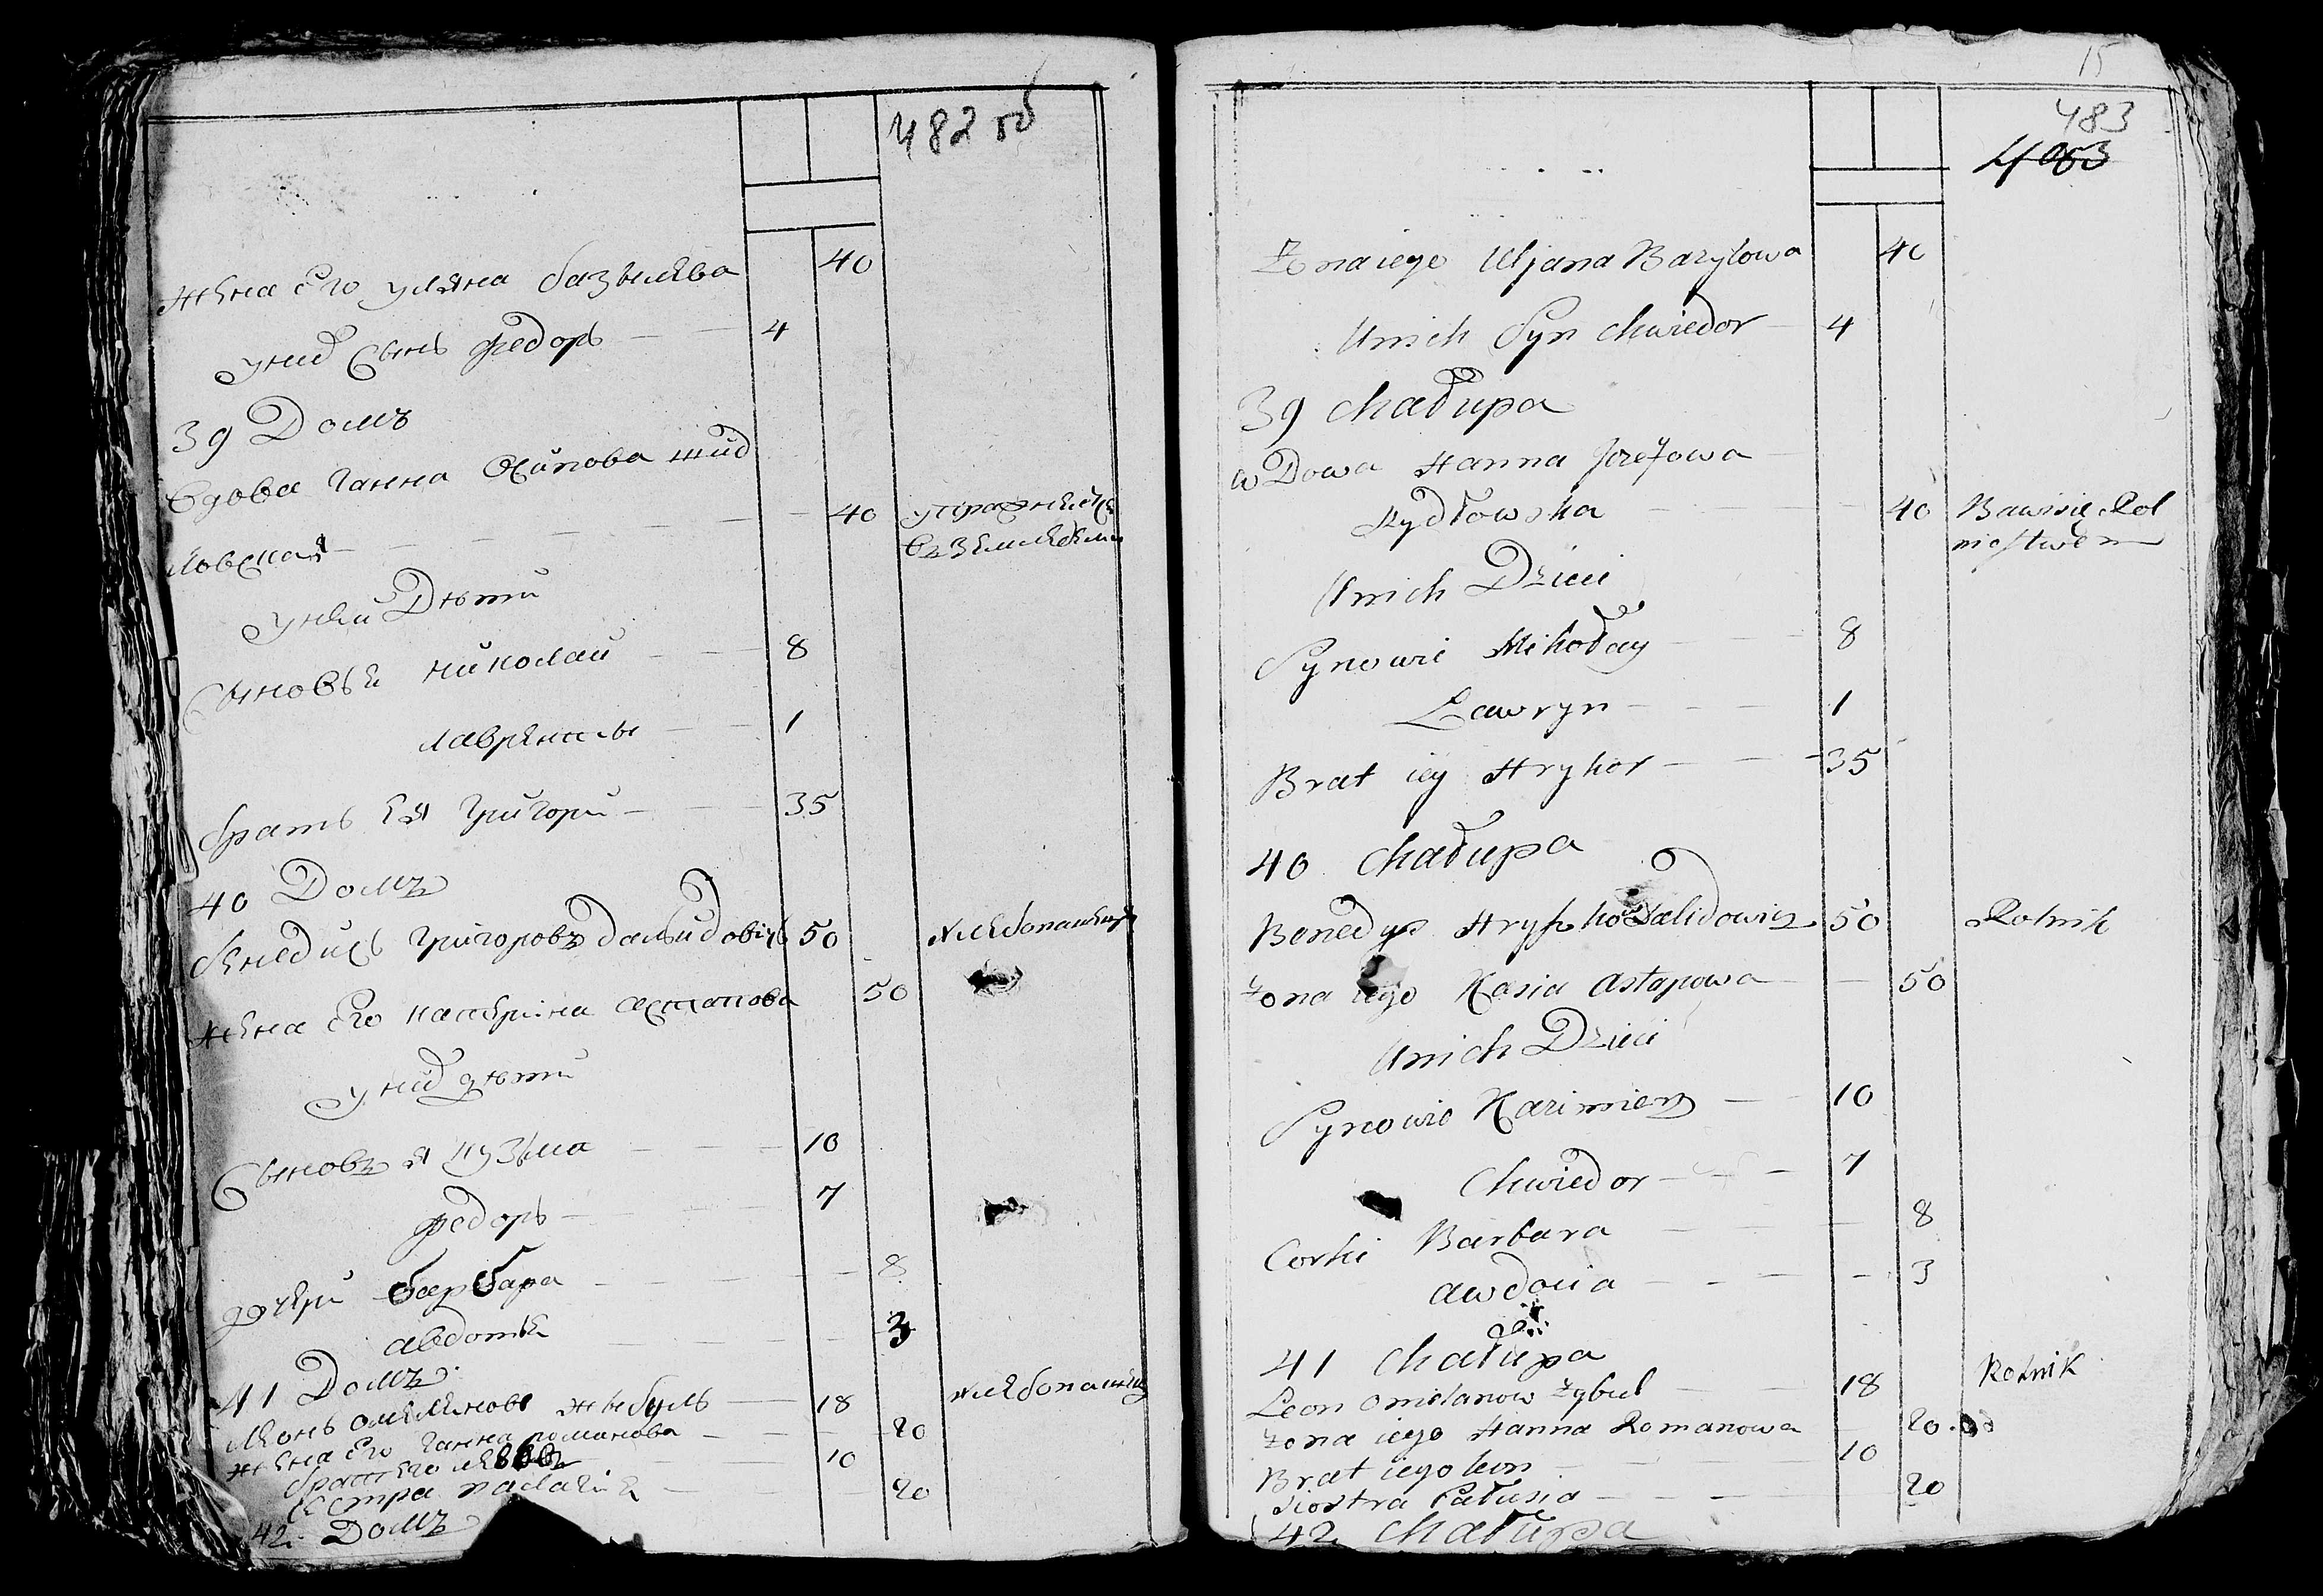 482 об
жена его уляна базылева 40
у них сынъ федоръ 4
39 Домъ
вдова ганна осипова жид
ловская 40 упражняется
въ земледелии
у неи Дѣти
Сыновья николаи 8
лаврентьи 1
братъ ея григори 35
40 Домъ
бенедисъ григоровъ далидовичъ 50 хлебопашецъ
жена его катерина астапова 50
у них дѣти
Сыновъя кузьма 10
федоръ 7
дочери барбара 8
авдотья 3
41 Домъ
леонъ омеляновъ жибуль 18 хлебопашецъ
жена его ганна романова 20
братъ его 10
сестра 20
42 Домъ
15
483
Żona iego Uljana Bazylowa 40
Unich Syn Chwiedor 4
39 Chałupa
wDowa Hanna Jozefowa
Żydłowska 40 Bawi się Rol
nictwem
Unich Dzieci
Synowie Mikołay 8
Ławryn 1
Brat iey Hryhor 35
40 Chałupa
Benedys Hryhorow Dalidowicz 50 Rolnik
Żona iego Kasia Astapowa 50
Unich Dzieci
Synowie Kazimierz 10
Chwiedor 7
Corki Barbara 8
Awdocia 3
41 Chałupa
Leon Omelanow Żybul 18 Rolnik
Żona iego Hanna Romanowa 20
Brat iego Leon 10
Siostra Pałusia 20
42 Chałupa